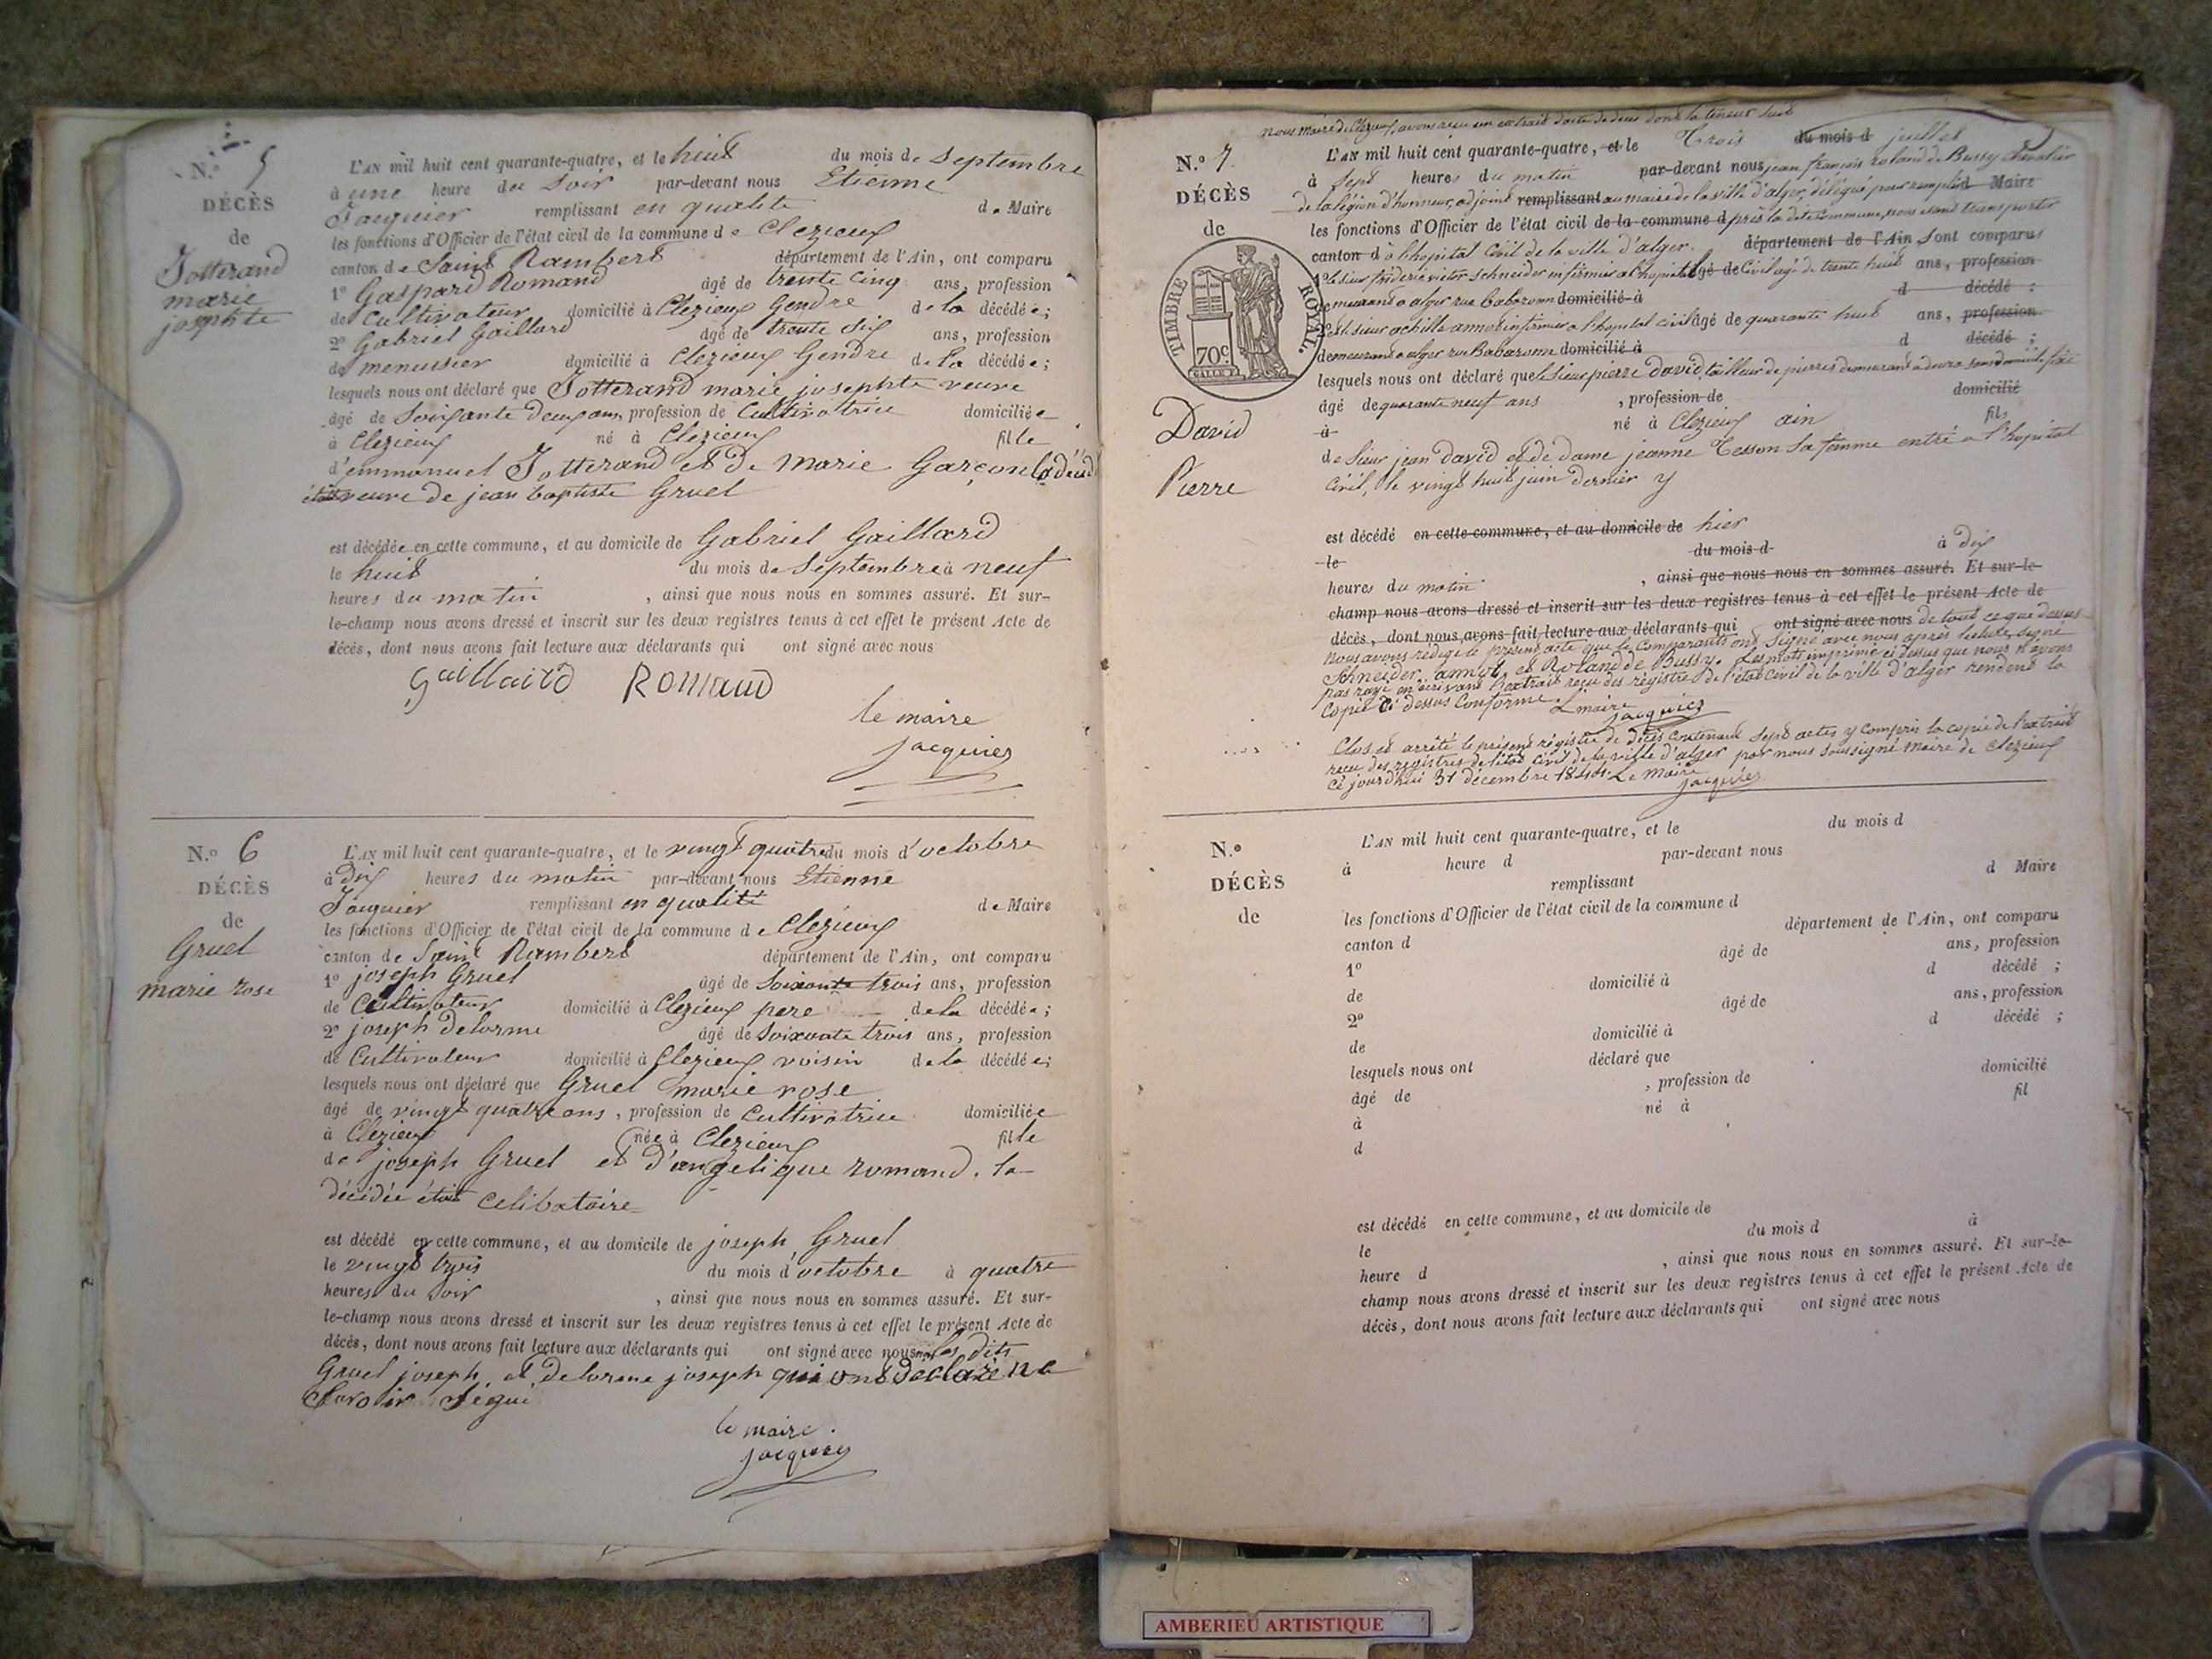 N.o 5
DÉCÈS
de
Jotterand
marie
josephte
L'AN mil huit cent quarante-quatre, et le huit du mois de Septembre
à une heure du Soir par-devant nous Etienne
Jacquier remplissant en qualité de Maire
les fonctions d'Officier de l'état civil de la commune de Clezieux
canton de Saint Rambert département de l'Ain, ont comparu
1o Gaspard Romand âgé de trente cinq ans, profession
de Cultivateur domicilié à Clezieux Gendre de la décédée;
2o Gabriel Gaillard âgé de trente six ans, profession
de menuisier domicilié à Clezieux Gendre de la décédée;
lesquels nous ont déclaré que Jotterand marie josephte veuve
âgé de Soixante deux ans, profession de Cultivatrice domiciliée
à Clezieux né à Clezieux fille
d'emmanuel Jotterand et de Marie Garçon la
veuve de jean baptiste Gruel
est décédée en cette commune, et au domicile de Gabriel Gaillard
le huit du mois de Septembre à neuf
heures du matin, ainsi que nous nous en sommes assuré. Et sur-
le-champ nous avons dressé et inscrit sur les deux registres tenus à cet effet le présent Acte de
décès, dont nous avons fait lecture aux déclarants qui ont signé avec nous
Gaillard Romand
le maire
jacquier
N.o 6
DÉCÈS
de
Gruel
marie rose
L'AN mil huit cent quarante-quatre, et le vingt quatre du mois d'octobre
à Dix heures du matin par-devant nous Etienne
Jacquier remplissant en qualité de Maire
les fonctions d'Officier de l'état civil de la commune de Clezieux
canton de Saint Rambert département de l'Ain, ont comparu
1o joseph Gruel âgé de Soixante trois ans, profession
de Cultivateur domicilié à Clezieux pere de la décédée;
2o joseph delorme âgé de Soixante trois ans, profession
de Cultivateur domicilié à Clezieux voisin de la décédée;
lesquels nous ont déclaré que Gruel marie rose
âgé de vingt quatre ans, profession de Cultivatrice domiciliée
à Clezieux née à Clezieux fille
de joseph Gruel et d'angelique romand. la
décédée étoit Celibataire
est décédé en cette commune, et au domicile de joseph Gruel
le vingt trois du mois d'octobre à quatre
heures du Soir, ainsi que nous nous en sommes assuré. Et sur-
le-champ nous avons dressé et inscrit sur les deux registres tenus à cet effet le présent Acte de
décès, dont nous avons fait lecture aux déclarants qui ont signé avec nous les dits
Gruel joseph et Delorme joseph qui ont déclaré ne
Savoir Signé
le maire.
jacquier
nous maire de Clezieux avons reçu un extrait d'acte de deces dont la teneur suit
N.o 7
DÉCÈS
de
TIMBRE ROYAL.
70c
David
Pierre
L'AN mil huit cent quarante-quatre, et le Trois du mois d juillet
à Sept heures du matin par-devant nous jean françois roland de Bussy Chevalier
de la légion d'honneur, adjoint remplissant au maire de la ville d'alger, délégué pour remplir d Maire
les fonctions d'Officier de l'état civil de la commune d près la dite Commune, nous étant transporter
canton d à l'hopital Civil de la ville d'alger. département de l'Ain, Sont comparus
1o le sieur fréderic victor Schneider infirmier a l'hopital âgé de Civil agé de trente huit ans, profession
demeurant a alger rue babazoun domicilié à d décédé ;
2o et le sieur achille annot infirmier a l'hopital civil âgé de quarante huit ans, profession
demeurant a alger rue Babazoun domicilié à d décédé ;
lesquels nous ont déclaré que le Sieur pierre david, tailleur de pierres demeurant a sans domicile fixe
âgé de quarante neuf ans, profession de domicilié
à né à Clezieux ain fils
de Sieur jean david et de dame jeanne Tesson Sa femme entré a l'hopital
Civil, le vingt huit juin dernier y
est décédé en cette commune, et au domicile de hier
le du mois d à dix
heures du matin, ainsi que nous nous en sommes assuré. Et sur-le-
champ nous avons dressé et inscrit sur les deux registres tenus à cet effet le présent Acte de
décès, dont nous avons fait lecture aux déclarants qui ont signé avec nous de tout ce que dessus
Nous avons rédigé le présent acte que les Comparants ont Signé avec nous après lecture, Signé
Schneider, annot, et Roland de Bussy. Les mots imprimé ci dessus que nous n'avons
pas rayé en écrivant l'extrait reçu des registres de l'état civil de la ville d'alger rendent la
Copie Ci dessus Conforme. L maire
jacquier
Clos et arrêté le présent régistre de décès Contenant Sept actes y Compris la copie de l'extrait
reçu des registres de l'état civil de la ville d'alger par nous Soussigné maire de Clezieux
Ce jourd'hui 31 décembre 1844. Le Maire
jacquier
N.o
DÉCÈS
de
L'AN mil huit cent quarante-quatre, et le du mois d
à heure d par-devant nous
remplissant d Maire
les fonctions d'Officier de l'état civil de la commune d
canton d département de l'Ain, ont comparu
1o âgé de ans, profession
de domicilié à d décédé ;
2o âgé de ans, profession
de domicilié à d décédé ;
lesquels nous ont déclaré que
âgé de , profession de domicilié
à né à fil
d
est décédé en cette commune, et au domicile de
le du mois d à
heure d , ainsi que nous nous en sommes assuré. Et sur-le-
champ nous avons dressé et inscrit sur les deux registres tenus à cet effet le présent Acte de
décès, dont nous avons fait lecture aux déclarants qui ont signé avec nous
AMBERIEU ARTISTIQUE